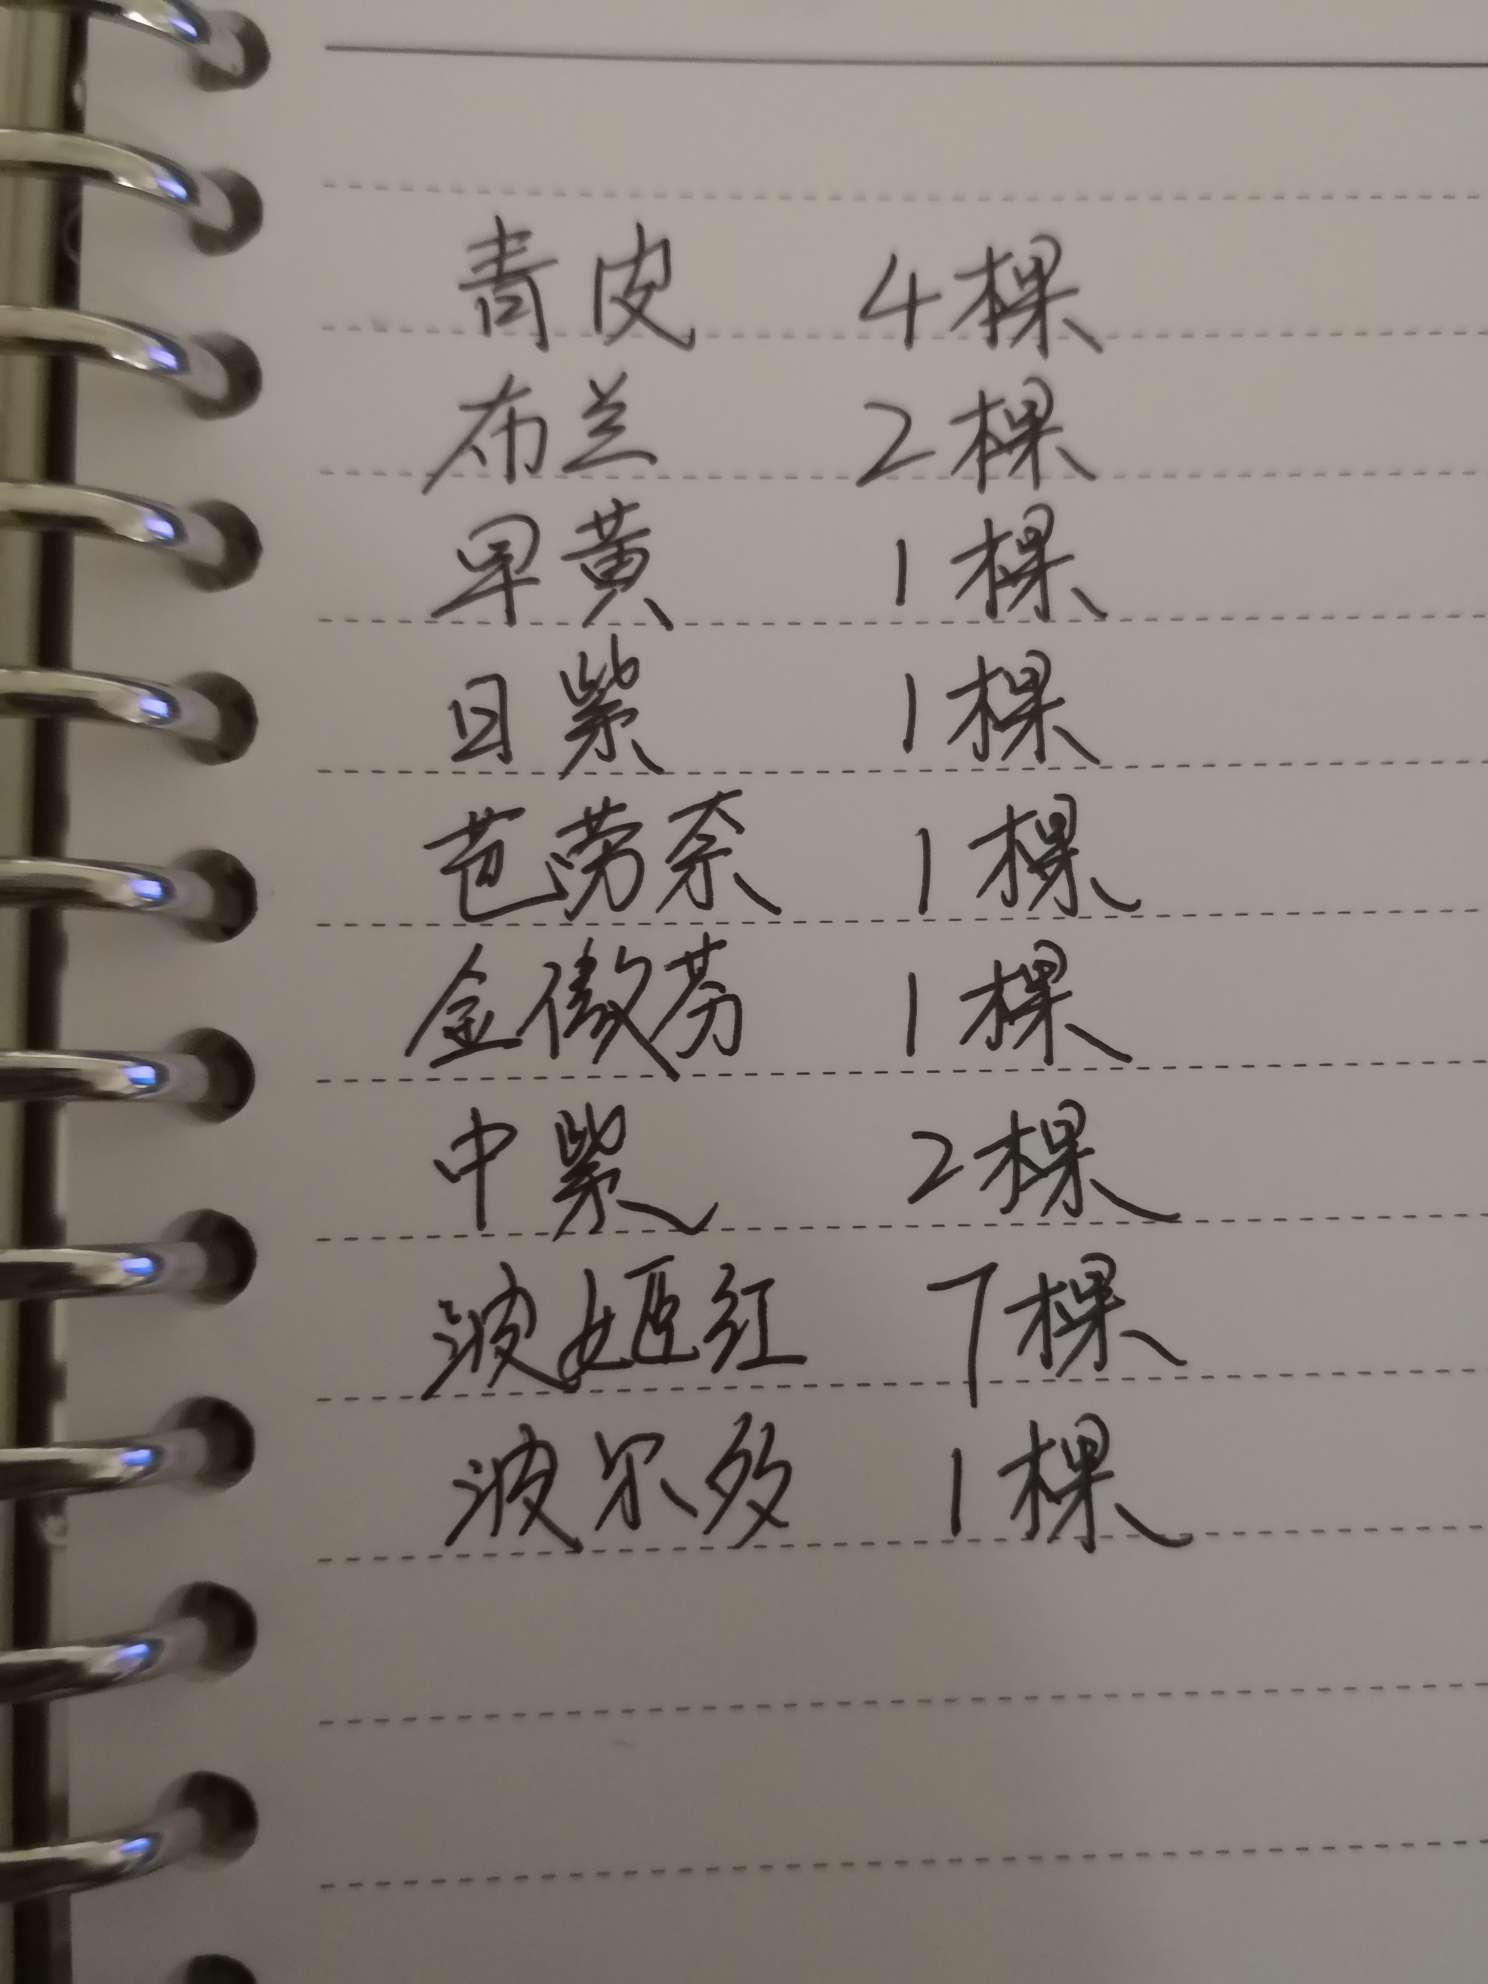 青皮 4棵
布兰 2棵
早黄 1棵
日紫 1棵
芭劳奈 1棵
金傲芬 1棵
中紫 2棵
波姬红 7棵
波尔多 1棵